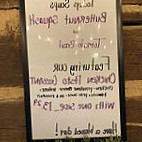 Today Soups
Butternut Squash
Tomato Basil
Featuring our
Chicken Pesto Croissant
with one side 13.29
Have a Blessed day!